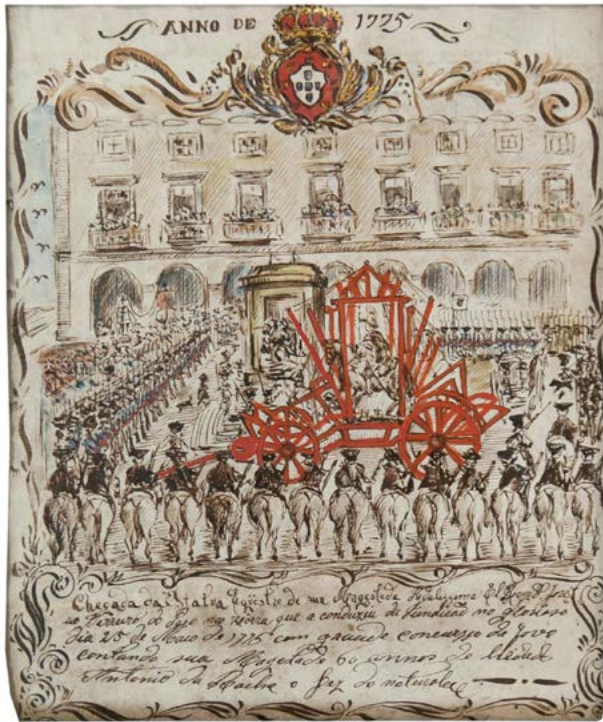 ANNO DE 1775
Chegada da Estatua Eqüestre de sua Magestade Fidelissima El Rey D José
ao Terreiro do Paço na Zorra que a conduziu da fundição no glorioso
Dia 25 de Maio de 1775 com grande concurso de Povo
contando sua Magestade 60 annos de Iidade
Antonio da o fez do natural